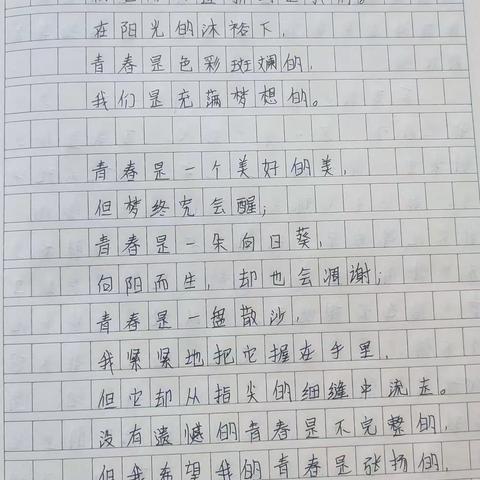 在阳光的沐裕下，
青春是色彩斑斓的，
我们是充满梦想的。
青春是一个美好的美，
但梦终究会醒；
青春是一朵向日葵，
向阳而生，却也会凋谢；
青春是一盘散沙，
我紧紧地把它握在手里，
但它却从指尖的细缝中流走。
没有遗憾的青春是不完整的，
但我希望我的青春是张扬的，